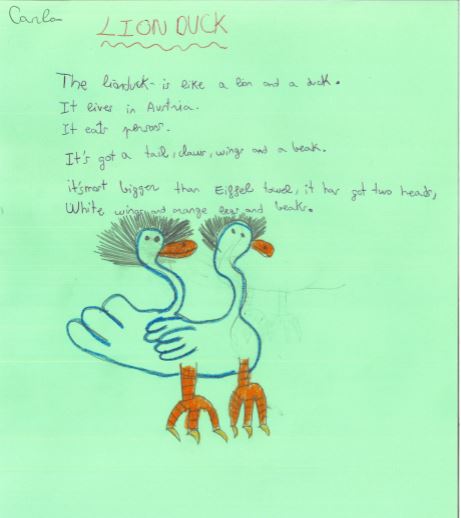 Carla
LION DUCK
The lionduck is like a lion and a duck.
It lives in Austria.
It eats person.
It's got a tail, claws, wings and a beak.
it's most bigger than Eiffel towel, it has got two heads,
White wings and orange legs and beaks.